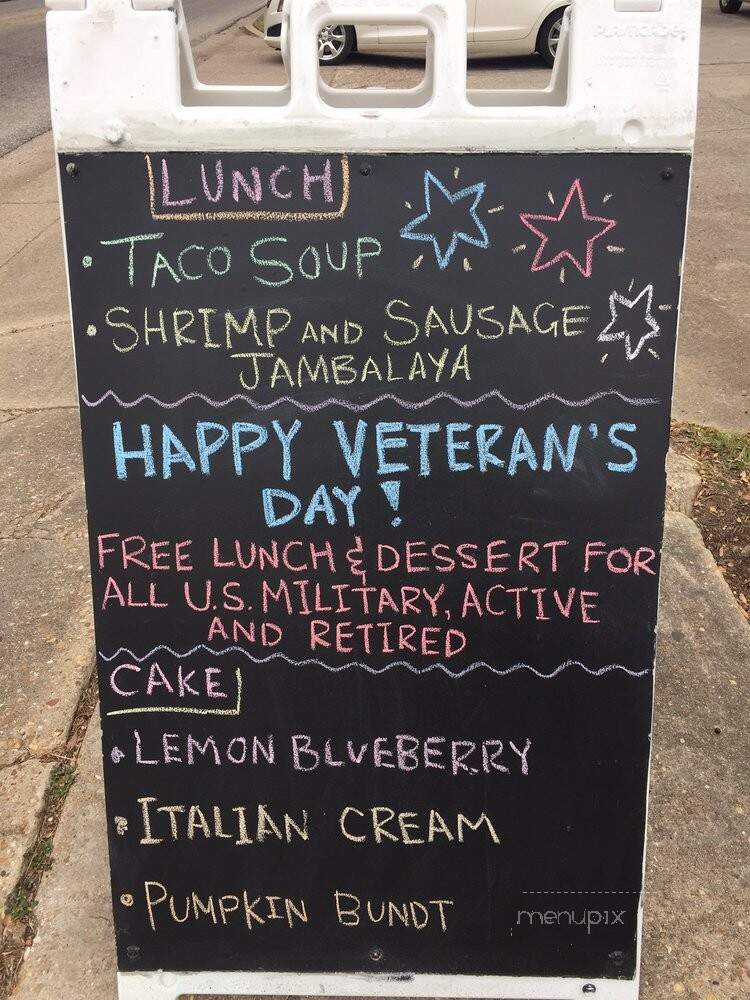 LUNCH
• TACO SOUP
• SHRIMP AND SAUSAGE
JAMBALAYA
HAPPY VETERAN'S
DAY!
FREE LUNCH & DESSERT FOR
ALL U.S. MILITARY, ACTIVE
AND RETIRED
CAKE
• LEMON BLUEBERRY
• ITALIAN CREAM
• PUMPKIN BUNDT
menupix